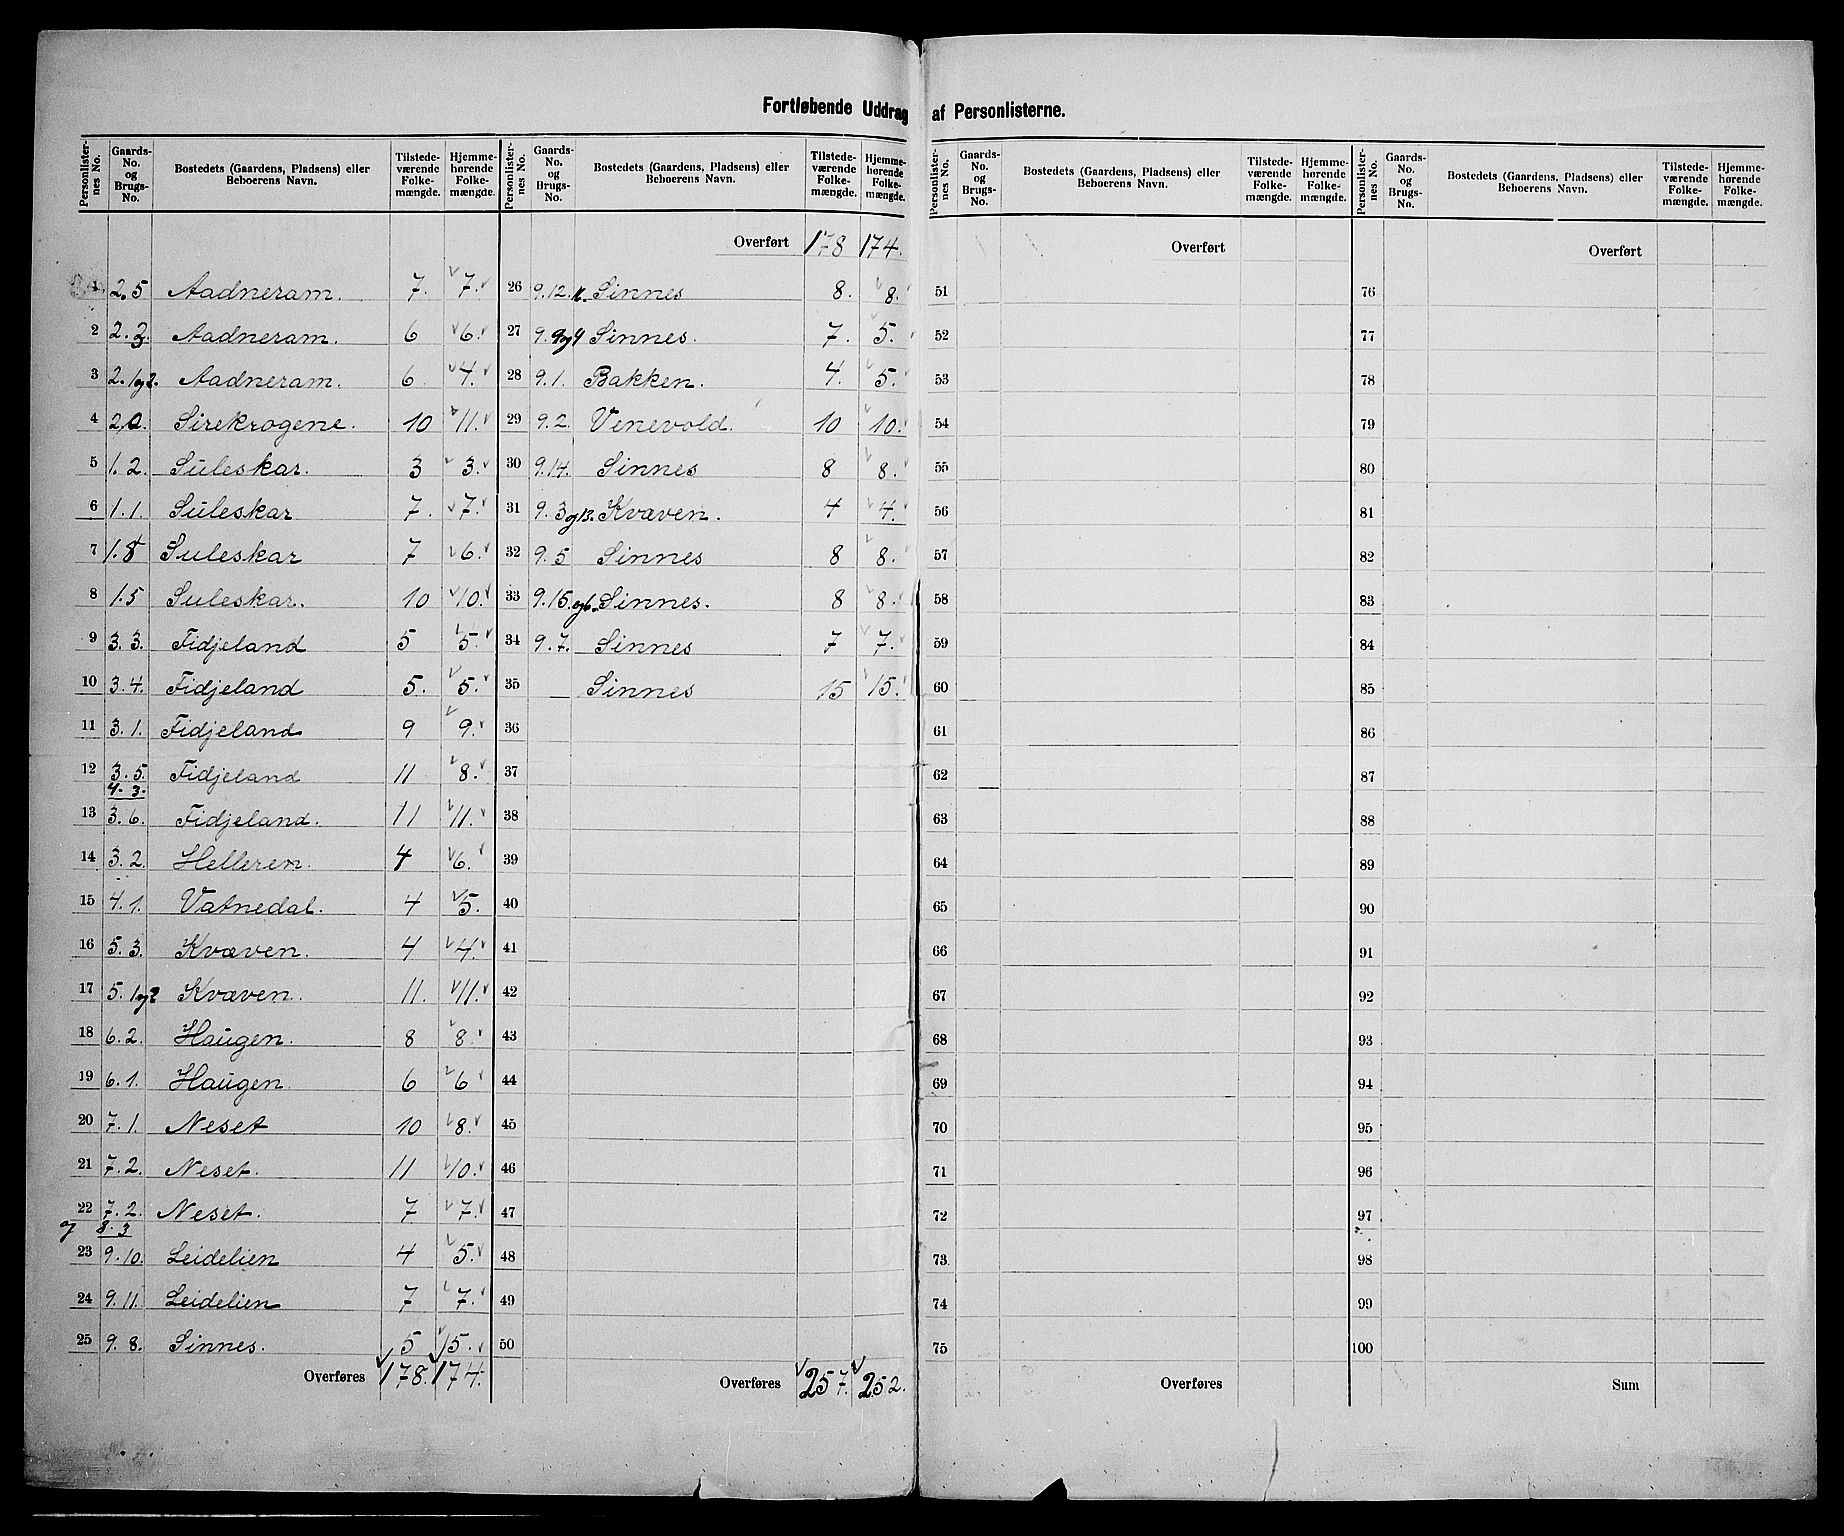 Fortløbende Uddrag af Personlisterne.
Personlisternes No. | Gaards-No. og Brugs-No. | Bostedets (Gaardens, Pladsens) eller Beboerens Navn. | Tilstedeværende Folkemængde. | Hjemmehørende Folkemængde.
1 2.5 Aadneram. 7. 7.
2 2.3. Aadneram. 6 6.
3 2.1og2. Aadneram. 6. 4.
4 Sirekrogene. 10 11.
5 1.2. Suleskar. 3 3.
6 1.1. Suleskar 7. 7.
7 1.8 Suleskar 7 6.
8 1.5 Suleskar. 10 10.
9 3.3. Fidjeland 5 5.
10 3.4. Fidjeland 5. 5.
11 3.1. Fidjeland 9 9.
12 3.5. Fidjeland 11 8.
4.3.
13 3.6. Fidjeland. 11 11.
14 3.2. Helleren. 4 6.
15 4.1. Vatnedal. 4 5.
16 5.3. Kvæven. 4 4.
17 5.1og2 Kvæven. 11. 11.
18 6.2. Haugen. 8 8.
19 6.1. Haugen. 6 6
20 7.1. Neset 10 8.
21 7.2. Neset. 11 10.
22 7.2. Neset. 7 7.
og 8.3
23 9.10. Leidelien 4 5.
24 9.11. Leidelien 7 7.
25 9.8. Sinnes. 5 5.
Overføres 178. 174.
Personlisternes No. | Gaards-No. og Brugs-No. | Bostedets (Gaardens, Pladsens) eller Beboerens Navn. | Tilstedeværende Folkemængde. | Hjemmehørende Folkemængde.
Overført 178 174.
26 9.12. Sinnes 8. 8.
27 9.9og4 Sinnes. 7. 5.
28 9.1. Bakken. 4. 5.
29 9.2. Venevold. 10 10.
30 9.14. Sinnes 8 8.
31 9.3og13. Kvæven. 4 4.
32 9.5 Sinnes 8 8.
33 9.15.og6. Sinnes. 8 8.
34 9.7. Sinnes 7 7.
35 Sinnes 15 15.
36
37
38
39
40
41
42
43
44
45
46
47
48
49
50
Overføres 257. 252.
Personlisternes No. | Gaards-No. og Brugs-No. | Bostedets (Gaardens, Pladsens) eller Beboerens Navn. | Tilstedeværende Folkemængde. | Hjemmehørende Folkemængde.
Overført
51
52
53
54
55
56
57
58
59
60
61
62
63
64
65
66
67
68
69
70
71
72
73
74
75
Overføres
Personlisternes No. | Gaards-No. og Brugs-No. | Bostedets (Gaardens, Pladsens) eller Beboerens Navn. | Tilstedeværende Folkemængde. | Hjemmehørende Folkemængde.
Overført
76
77
78
79
80
81
82
83
84
85
86
87
88
89
90
91
92
93
94
95
96
97
98
99
100
Sum